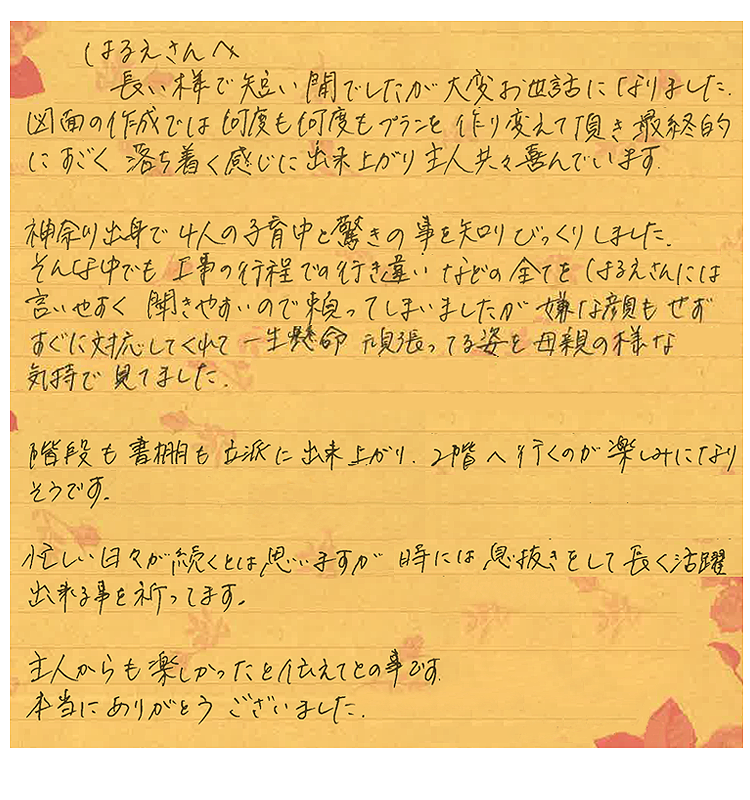 はるえさんへ
長い様で短い間でしたが大変お世話になりました.
図面の作成では何度も何度もプランを作り変えて頂き最終的
にすごく落ち着く感じに出来上がり主人共々喜んでいます.
神奈川出身で4人の子育中と驚きの事を知りびっくりしました.
そんな中でも工事の行程での行き違いなどの全てをはるえさんには
言いやすく聞きやすいので頼ってしまいましたが嫌な顔もせず
すぐに対応してくれて一生懸命頑張ってる姿を母親の様な
気持で見てました.
階段も書棚も立派に出来上がり.2階へ行くのが楽しみになり
そうです.
忙しい日々が続くとは思いますが時には息抜きをして長く活躍
出来る事を祈ってます.
主人からも楽しかったと伝えてとの事です.
本当にありがとうございました.